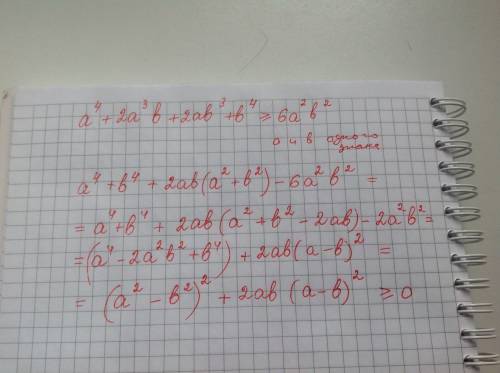 a⁴ + 2a³b + 2ab³ + b⁴ ≥ 6a²b²
a и b одного
знака
a⁴ + b⁴ + 2ab(a² + b²) - 6a²b² =
= a⁴ + b⁴ + 2ab(a² + b² - 2ab) - 2a²b² =
= (a⁴ - 2a²b² + b⁴) + 2ab(a - b)² =
= (a² - b²)² + 2ab (a - b)² ≥ 0